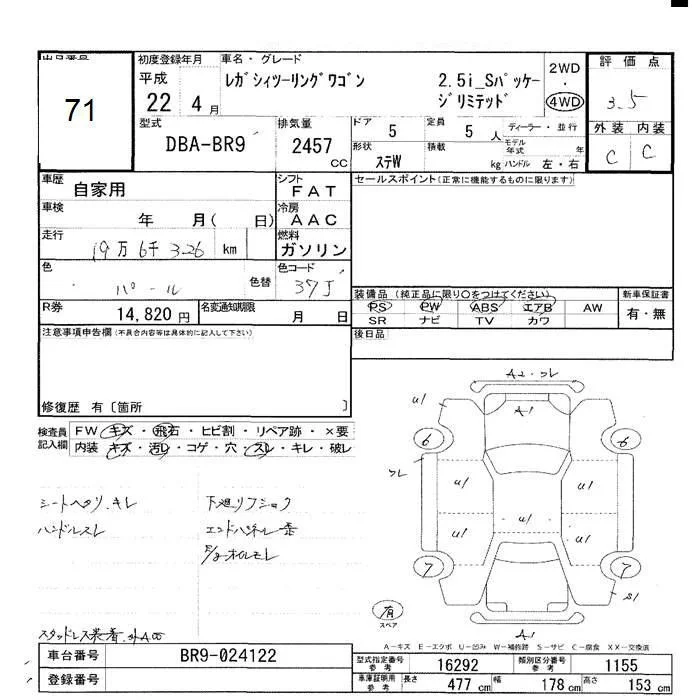 出品番号
71
初度登録年月
平成
22 4 月
車名・グレード
レガシィツーリングワゴン 2.5i_Sパッケー
ジリミテッド
2WD
・
4WD
評価点
3.5
外装 内装
C C
型式
DBA-BR9
排気量
2457
CC
ドア 5
定員 5 人
ディーラー・並行
形状
ステW
積載 kg
モデル年式 年
ハンドル 左・右
車歴
自家用
シフト
FAT
セールスポイント(正常に機能するものに限ります)
車検
年 月( 日)
冷房
AAC
走行
19万6千326 km
燃料
ガソリン
色
パール
色替
色コード
37J
装備品(純正品に限り○をつけてください)
新車保証書
PS PW ABS エアB AW
SR ナビ TV カワ
有・無
R券
14,820 円
名変通知期限
月 日
後日品
注意事項申告欄(不具合内容等は具体的に記入して下さい)
修復歴 有〔箇所 〕
検査員
記入欄
FW キズ・飛石・ヒビ割・リペア跡・×要
内装 キズ・汚レ・コゲ・穴・スレ・キレ・破レ
シートヘタリ.キレ
ハンドルスレ
下廻リフショク
スタッドレス装着.外A00
A2・ワレ
A1
U1
6 6
ワレ
U1 U1
U1
U1 U1
7 7
S1
有
スペア
A1
A-キズ E-エクボ U-凹み W-補修跡 S-サビ C-腐食 XX-交換済
車台番号 BR9-024122
登録番号
型式指定番号
参考
16292
類別区分番号
参考
1155
車庫証明用
参考
長さ 477 cm
幅 178 cm
高さ 153 cm